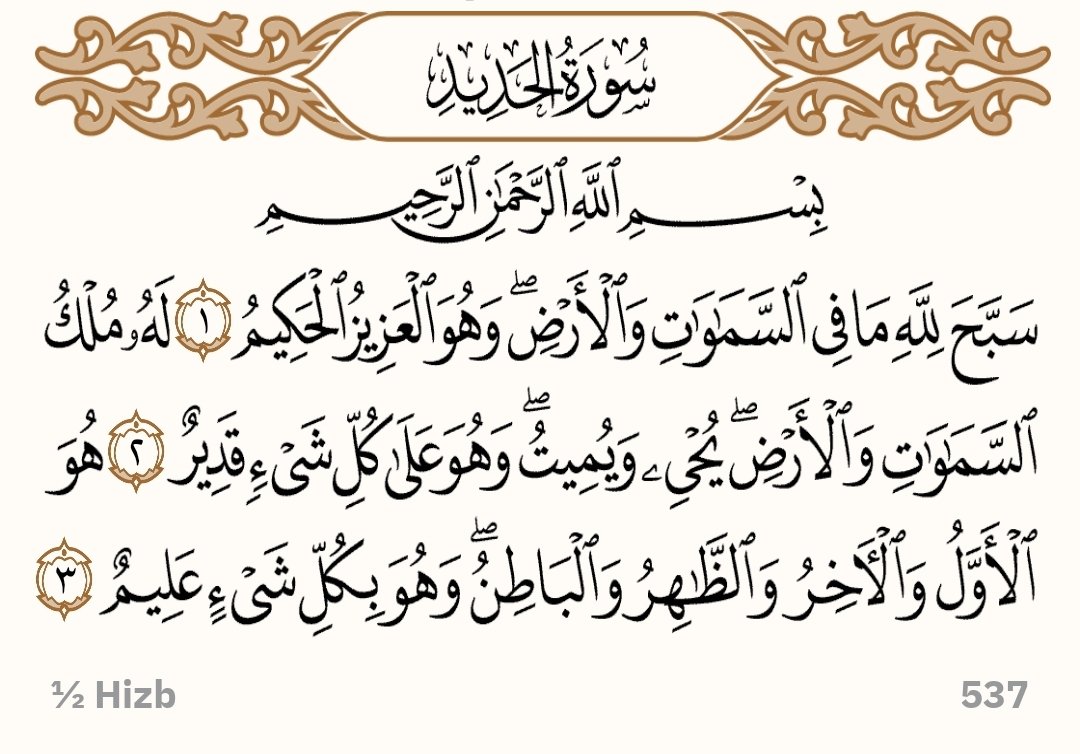 سُورَةُ الحَدِيدِ
بِسْمِ ٱللَّهِ ٱلرَّحْمَٰنِ ٱلرَّحِيمِ
سَبَّحَ لِلَّهِ مَا فِي ٱلسَّمَٰوَٰتِ وَٱلْأَرْضِۖ وَهُوَ ٱلْعَزِيزُ ٱلْحَكِيمُ ١ لَهُۥ مُلْكُ
ٱلسَّمَٰوَٰتِ وَٱلْأَرْضِۖ يُحْيِۦ وَيُمِيتُۖ وَهُوَ عَلَىٰ كُلِّ شَيْءٖ قَدِيرٌ ٢ هُوَ
ٱلْأَوَّلُ وَٱلْأٓخِرُ وَٱلظَّٰهِرُ وَٱلْبَاطِنُۖ وَهُوَ بِكُلِّ شَيْءٍ عَلِيمٌ ٣
½ Hizb 537